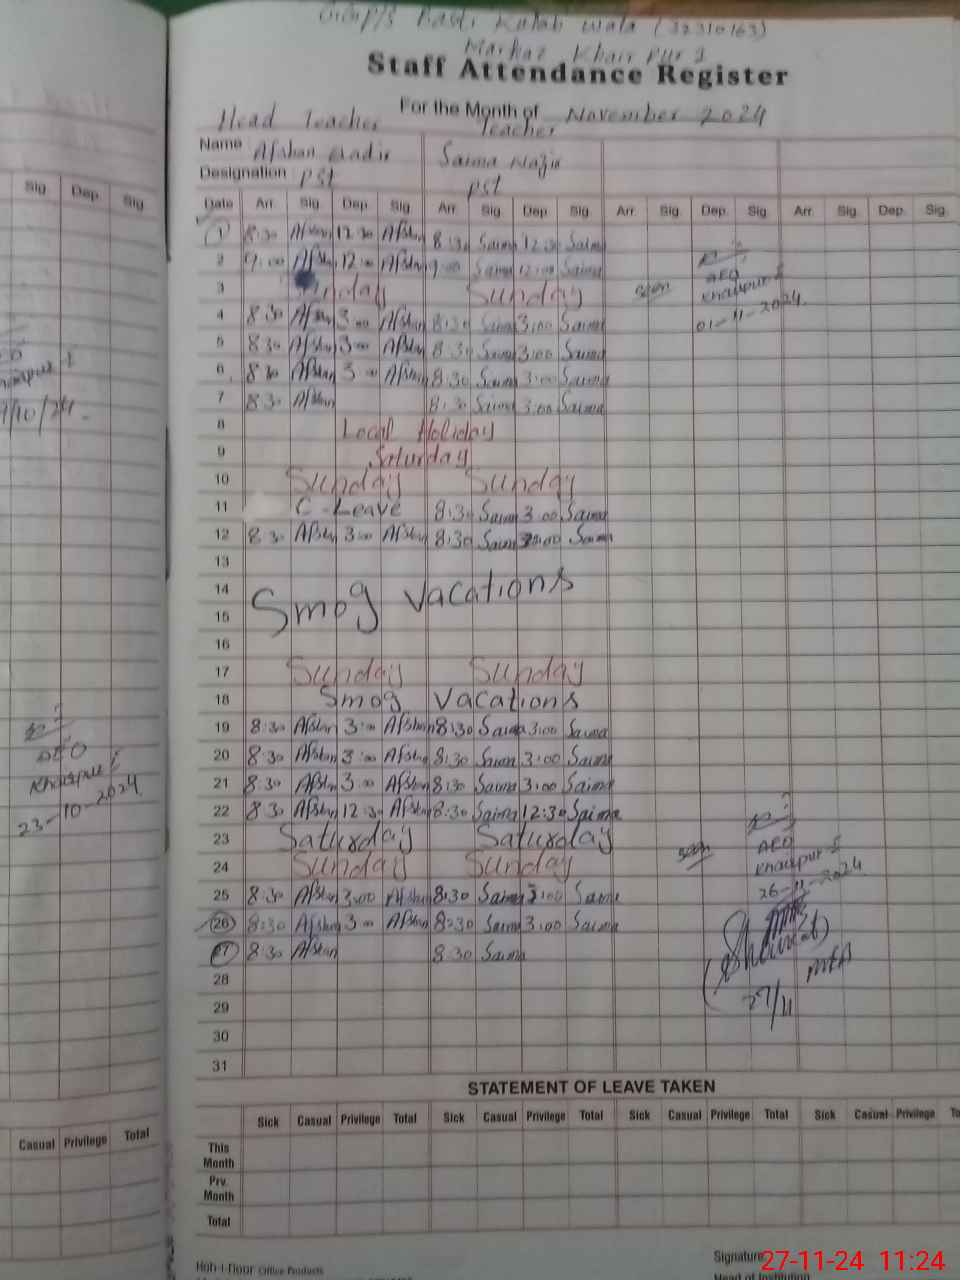 Basti Kutab wala (32310163)
Markaz Khair Pur 1
Staff Attendance Register
For the Month of November 2024
Head Teacher Teacher
Name Afshan Nadir Saima Nazir
Designation PST PST
Date Arr. Sig. Dep. Sig. Arr. Sig. Dep. Sig. Arr. Sig. Dep. Sig. Arr. Sig. Dep. Sig.
1 8:30 Afshan 12:30 Afshan 8:30 Saima 12:30 Saima
2 9:00 Afshan 12:00 Afshan 9:00 Saima 12:00 Saima
3 Sunday Sunday seen AEO Khairpur I
4 8:30 Afshan 3:00 Afshan 8:30 Saima 3:00 Saima 01-11-2024
5 8:30 Afshan 3:00 Afshan 8:30 Saima 3:00 Saima
6 8:30 Afshan 3:00 Afshan 8:30 Saima 3:00 Saima
7 8:30 Afshan 8:30 Saima 3:00 Saima
8 Local Holiday
9 Saturday
10 Sunday Sunday
11 C-Leave 8:30 Saima 3:00 Saima
12 8:30 Afshan 3:00 Afshan 8:30 Saima 3:00 Saima
13
14 Smog Vacations
15
16
17 Sunday Sunday
18 Smog Vacations
19 8:30 Afshan 3:00 Afshan 8:30 Saima 3:00 Saima
20 8:30 Afshan 3:00 Afshan 8:30 Saima 3:00 Saima
21 8:30 Afshan 3:00 Afshan 8:30 Saima 3:00 Saima
22 8:30 Afshan 12:30 Afshan 8:30 Saima 12:30 Saima
23 Saturday Saturday AEO
24 Sunday Sunday seen Khairpur I
25 8:30 Afshan 3:00 Afshan 8:30 Saima 3:00 Saima 26-11-2024
26 8:30 Afshan 3:00 Afshan 8:30 Saima 3:00 Saima
27 8:30 Afshan 8:30 Saima MEA
28 27/11
29
30
31
STATEMENT OF LEAVE TAKEN
Sick Casual Privilege Total Sick Casual Privilege Total Sick Casual Privilege Total Sick Casual Privilege
This Month
Prv. Month
Total
Office Products
Signature
Head of Institution
27-11-24 11:24
Sig. Dep. Sig.
AEO
Khairpur I
23-10-2024
Casual Privilege Total